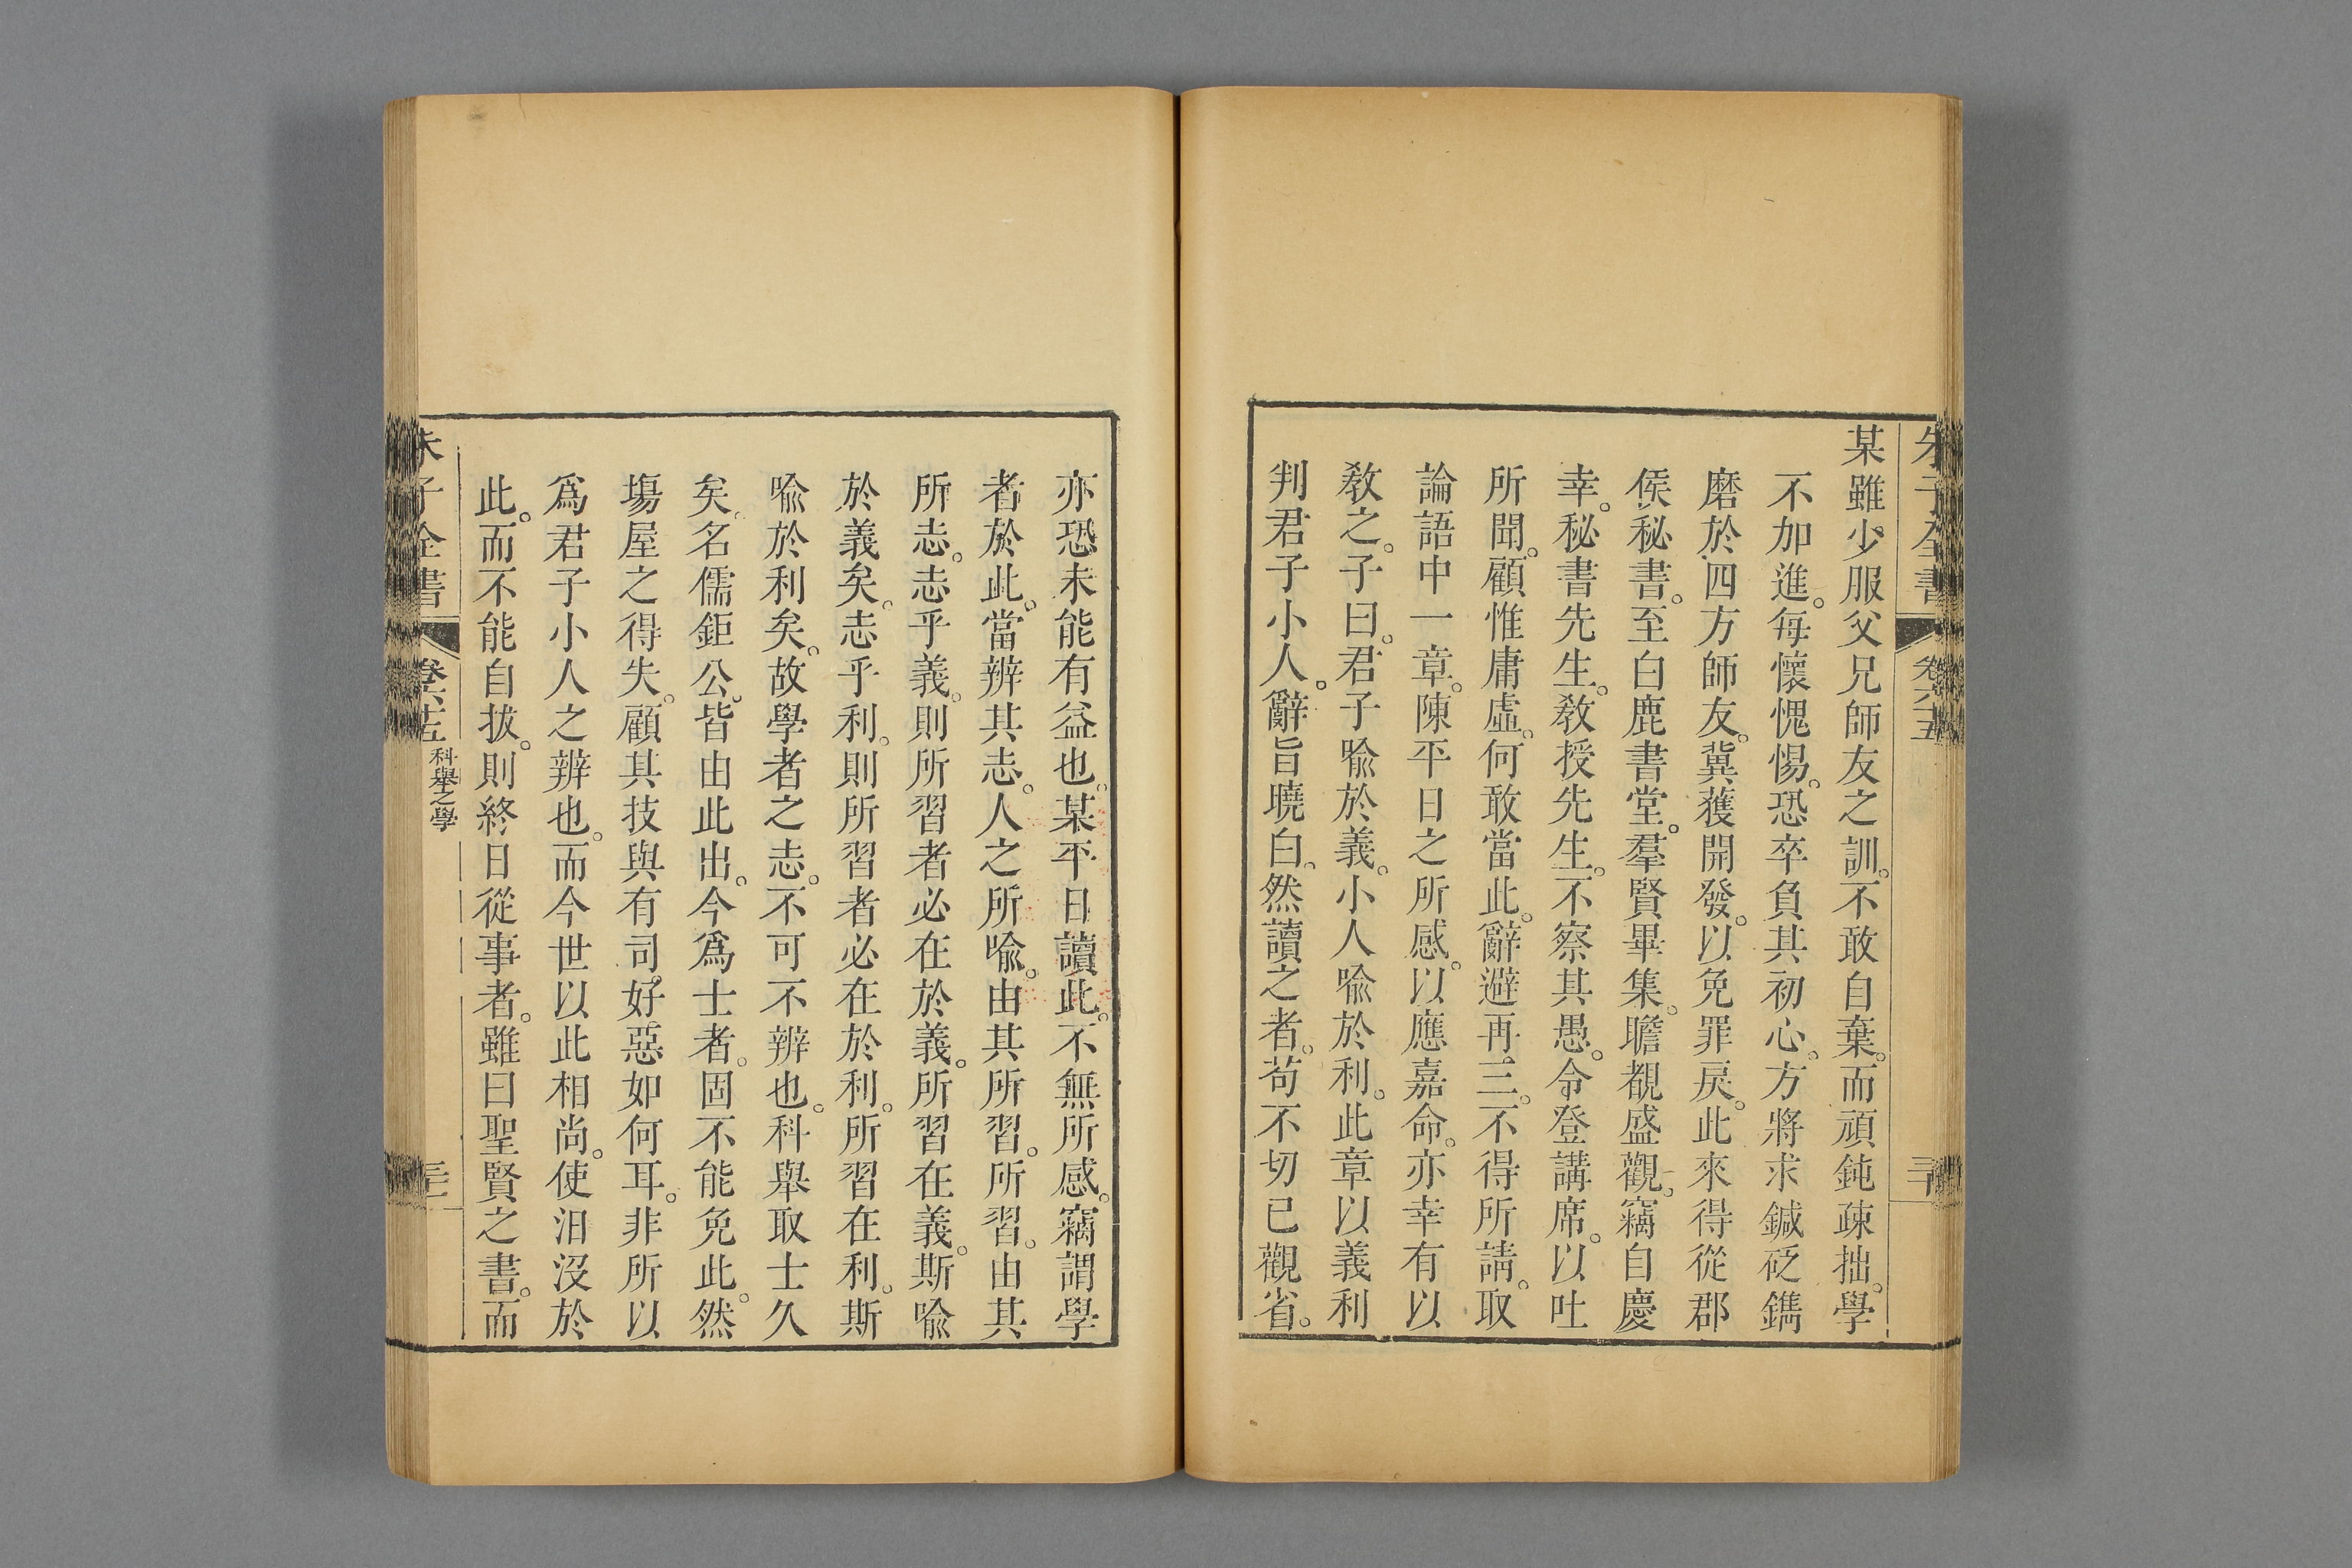 朱子全書
卷六十五
三十
某雖少服父兄師友之訓。不敢自棄。而頑鈍疎拙。學
不加進。每懷愧惕。恐卒負其初心。方將求鍼砭鐫
磨於四方師友。冀獲開發。以免罪戾。此來得從郡
侯秘書。至白鹿書堂。羣賢畢集。瞻覩盛觀。竊自慶
幸。秘書先生。敎授先生。不察其愚。令登講席。以吐
所聞。顧惟庸虛。何敢當此。辭避再三。不得所請。取
論語中一章。陳平日之所感。以應嘉命。亦幸有以
敎之。子曰。君子喩於義。小人喩於利。此章以義利
判君子小人。辭旨曉白。然讀之者。苟不切己觀省。
亦恐未能有益也。某平日讀此。不無所感。竊謂學
者於此。當辨其志。人之所喩。由其所習。所習。由其
所志。志乎義。則所習者必在於義。所習在義。斯喩
於義矣。志乎利。則所習者必在於利。所習在利。斯
喩於利矣。故學者之志。不可不辨也。科舉取士久
矣。名儒鉅公。皆由此出。今爲士者。固不能免此。然
塲屋之得失。顧其技與有司。好惡如何耳。非所以
爲君子小人之辨也。而今世以此相尚。使汨沒於
此。而不能自拔。則終日從事者。雖曰聖賢之書。而
朱子全書
卷六十五
科舉之學